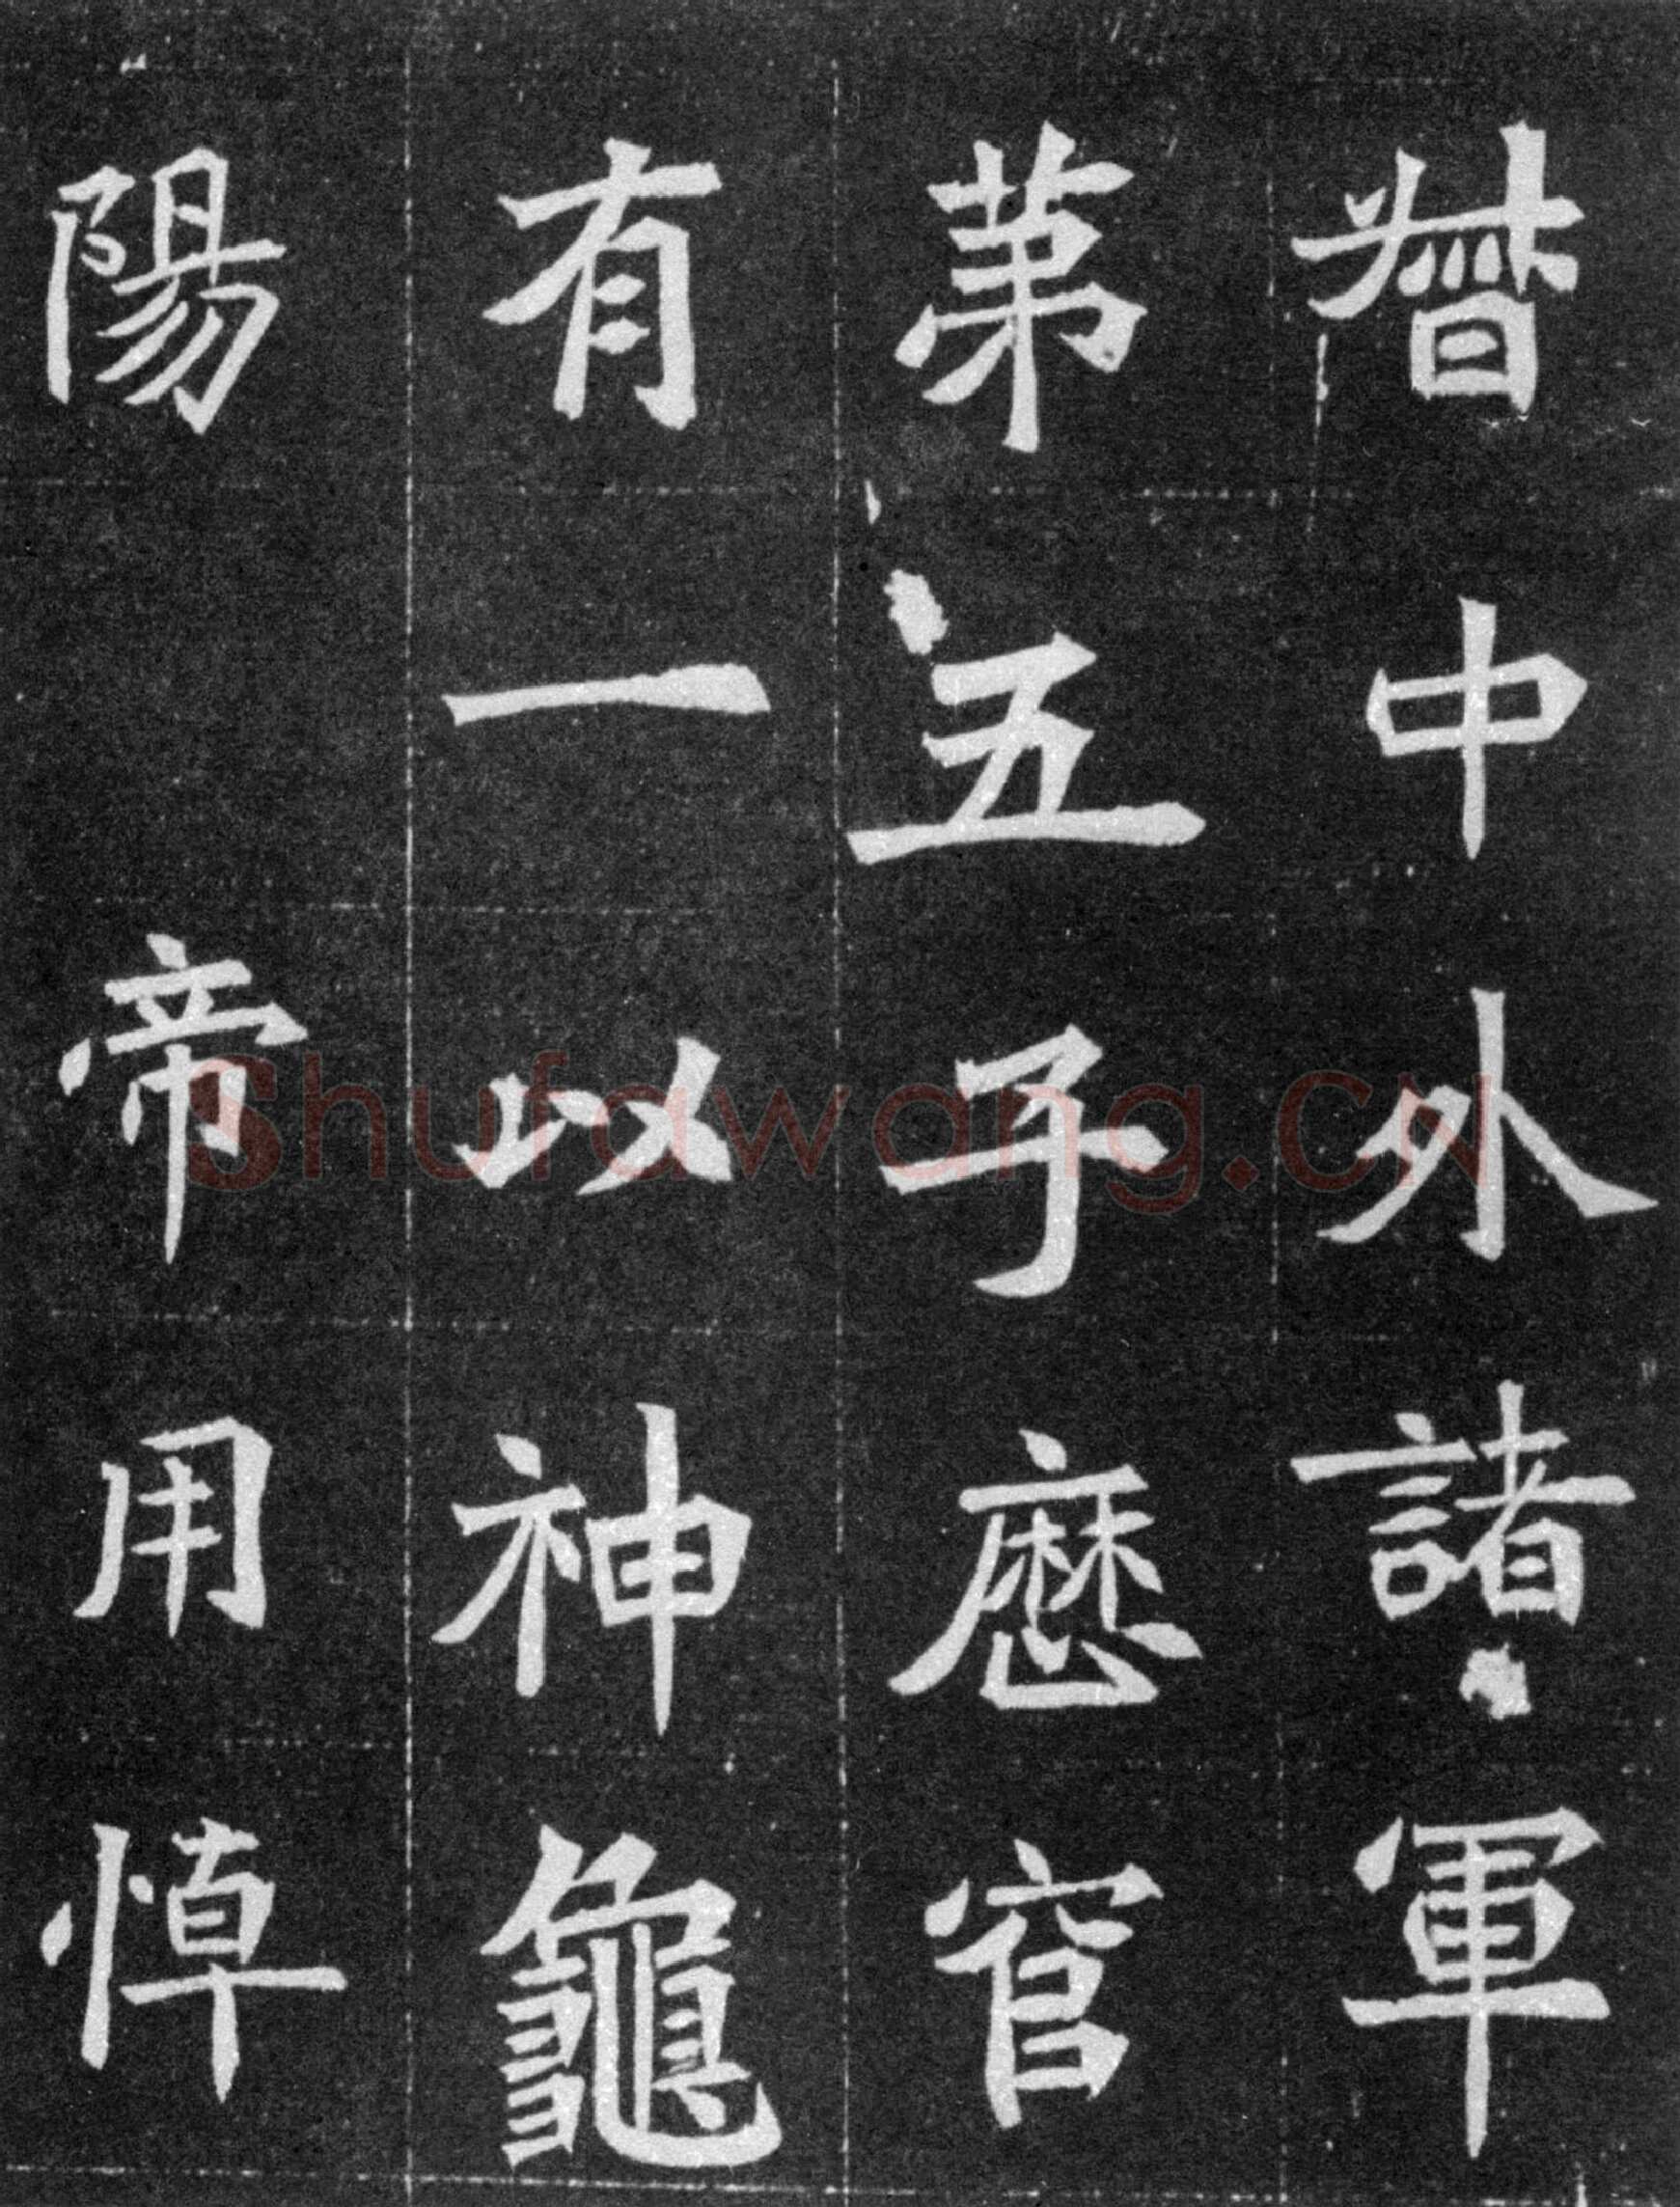 督中外諸軍
第五子歷官
有一以神龜
陽帝用悼
Shufawang.CN